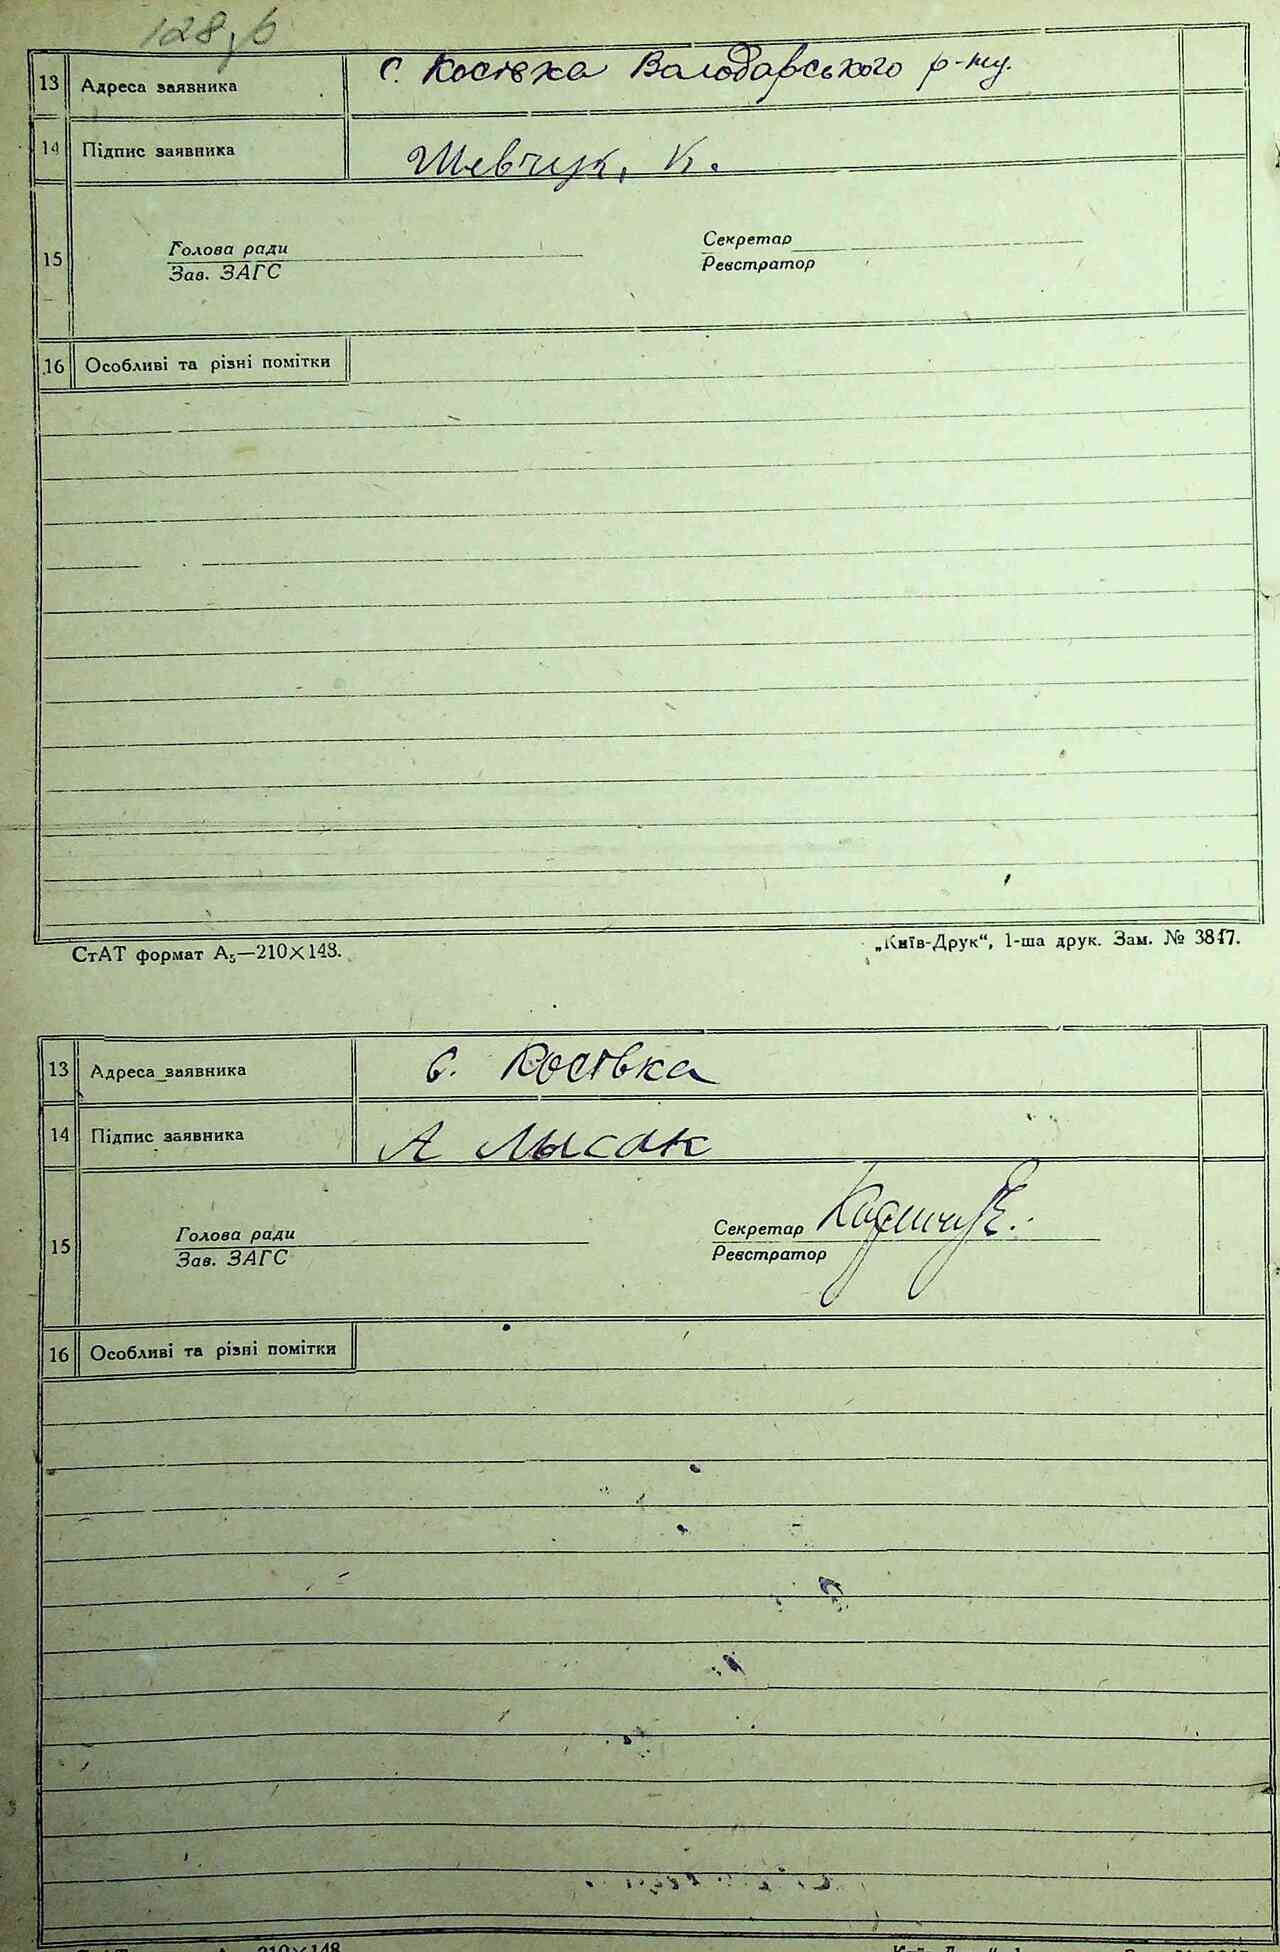 128
13 Адреса заявника с. Косівка Володарського р-ну.
14 Підпис заявника Шевчук, К.
15 Голова ради Секретар
Зав. ЗАГС Реєстратор
16 Особливі та різні помітки
СтАТ формат А₅—210×148. „Київ-Друк“, 1-ша друк. Зам. № 3817.
13 Адреса заявника с. Косівка
14 Підпис заявника А Лысак
15 Голова ради Секретар
Зав. ЗАГС Реєстратор
16 Особливі та різні помітки